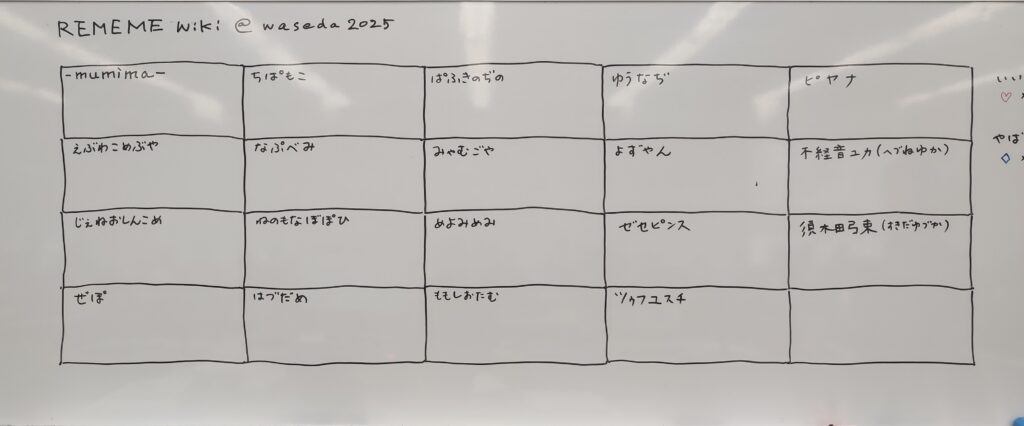 REMEME Wiki @ waseda 2025
-mumima-
ちぱもこ
ぱふきのぢの
ゆうなぢ
ピヤナ
えぶわこめぶや
なぷべみ
みゃむごや
よずやん
不経音ユカ(へづねゆか)
じぇねおしんこめ
ねのもなぼぽひ
めよみめみ
ゼセピンス
須木田弓束(すきだゆづか)
ぜぽ
はづだめ
ももしおたむ
ツゥフユスチ
いい
♡
やば
◇